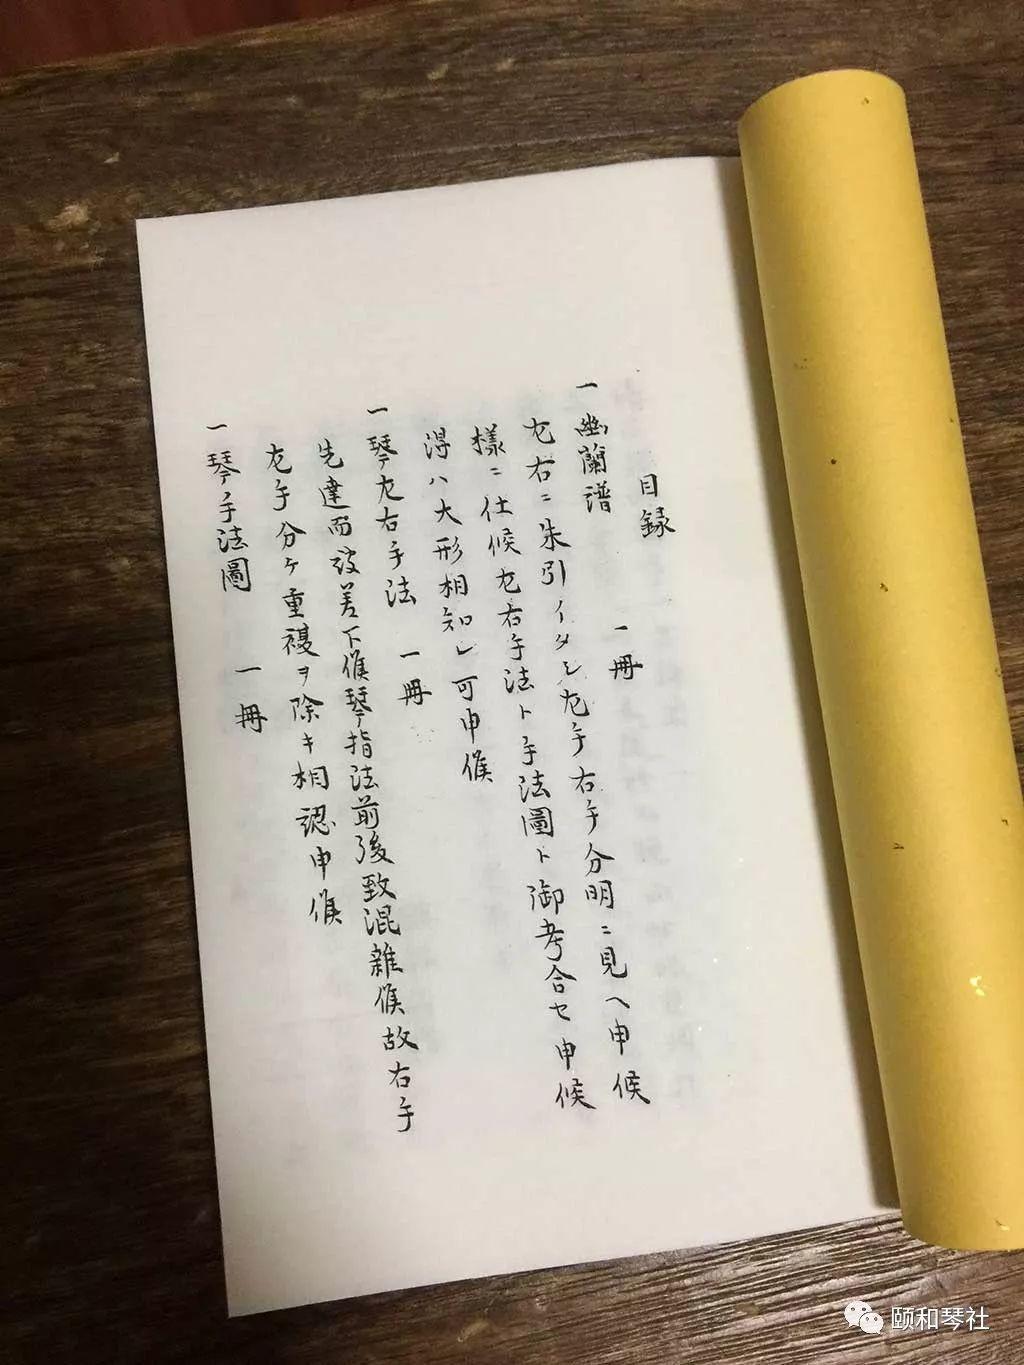 目録
一幽蘭譜 一冊
左右ニ朱引イタシ左手右手分明ニ見ヘ申候
様ニ仕候左右手法ト手法圖ト御考合セ申候
得ハ大形相知レ可申候
一琴左右手法 一冊
先達而致差下候琴指法前後致混雑候故右手
左手分ケ重複ヲ除キ相認申候
一琴手法圖 一冊
颐和琴社